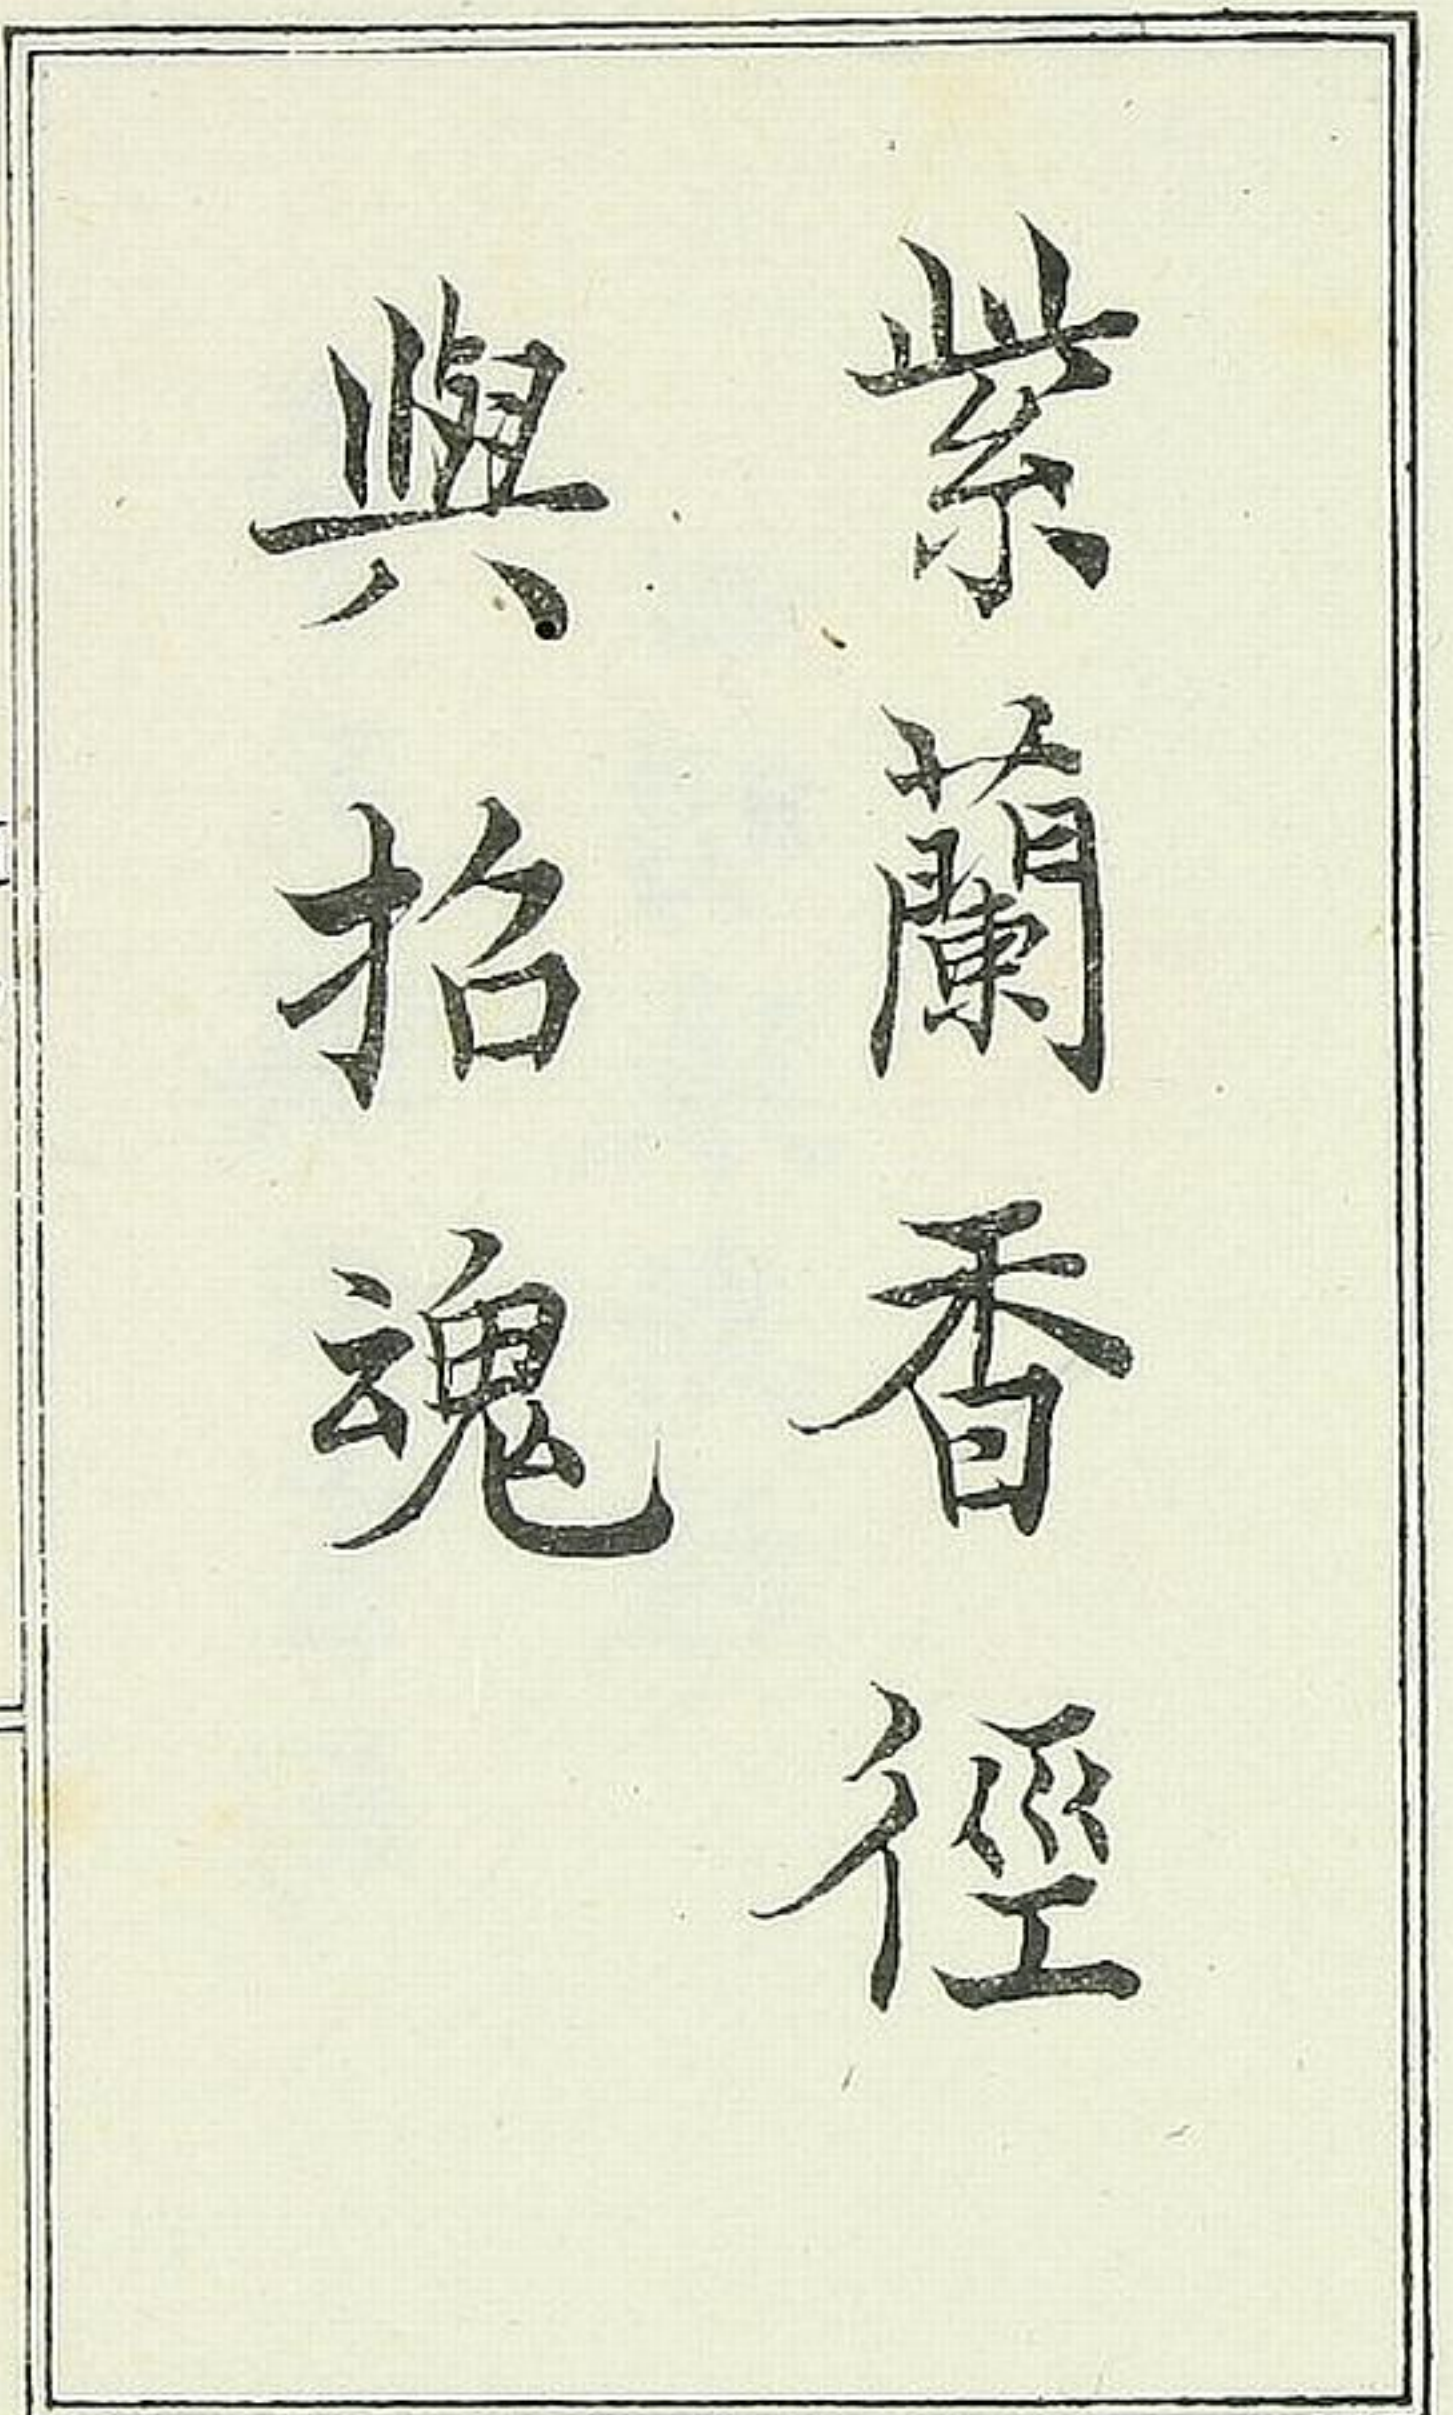 紫蘭香徑
與招魂